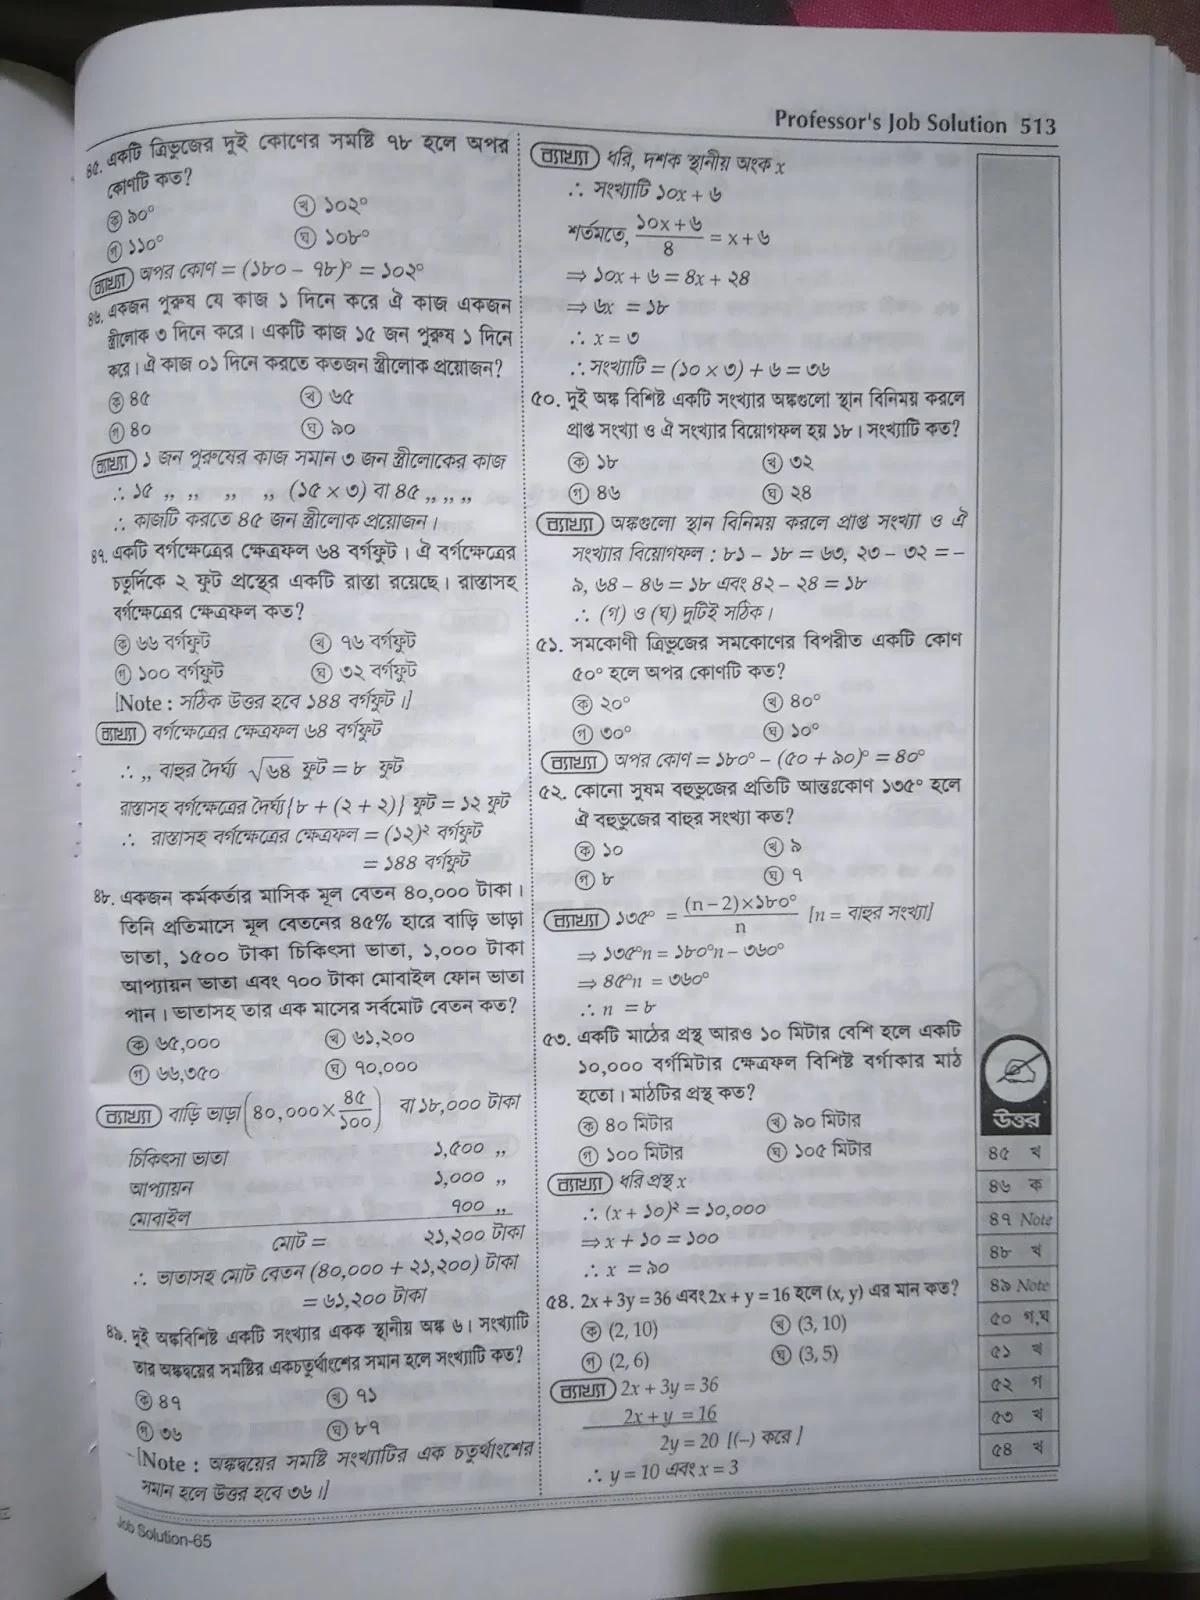 Professor's Job Solution 513
৪৫. একটি ত্রিভুজের দুই কোণের সমষ্টি ৭৮ হলে অপর
কোণটি কত?
ক ৯০° খ ১০২°
গ ১১০° ঘ ১০৮°
ব্যাখ্যা অপর কোণ = (১৮০ – ৭৮)° = ১০২°
৪৬. একজন পুরুষ যে কাজ ১ দিনে করে ঐ কাজ একজন
স্ত্রীলোক ৩ দিনে করে। একটি কাজ ১৫ জন পুরুষ ১ দিনে
করে। ঐ কাজ ০১ দিনে করতে কতজন স্ত্রীলোক প্রয়োজন?
ক ৪৫ খ ৬৫
গ ৪০ ঘ ৯০
ব্যাখ্যা ১ জন পুরুষের কাজ সমান ৩ জন স্ত্রীলোকের কাজ
∴ ১৫ ,, ,, ,, ,, (১৫ × ৩) বা ৪৫ ,, ,, ,,
∴ কাজটি করতে ৪৫ জন স্ত্রীলোক প্রয়োজন।
৪৭. একটি বর্গক্ষেত্রের ক্ষেত্রফল ৬৪ বর্গফুট। ঐ বর্গক্ষেত্রের
চতুর্দিকে ২ ফুট প্রস্থের একটি রাস্তা রয়েছে। রাস্তাসহ
বর্গক্ষেত্রের ক্ষেত্রফল কত?
ক ৬৬ বর্গফুট খ ৭৬ বর্গফুট
গ ১০০ বর্গফুট ঘ ৩২ বর্গফুট
[Note : সঠিক উত্তর হবে ১৪৪ বর্গফুট।]
ব্যাখ্যা বর্গক্ষেত্রের ক্ষেত্রফল ৬৪ বর্গফুট
∴ ,, বাহুর দৈর্ঘ্য √৬৪ ফুট = ৮ ফুট
রাস্তাসহ বর্গক্ষেত্রের দৈর্ঘ্য {৮ + (২ + ২)} ফুট = ১২ ফুট
∴ রাস্তাসহ বর্গক্ষেত্রের ক্ষেত্রফল = (১২)² বর্গফুট
= ১৪৪ বর্গফুট
৪৮. একজন কর্মকর্তার মাসিক মূল বেতন ৪০,০০০ টাকা।
তিনি প্রতিমাসে মূল বেতনের ৪৫% হারে বাড়ি ভাড়া
ভাতা, ১৫০০ টাকা চিকিৎসা ভাতা, ১,০০০ টাকা
আপ্যায়ন ভাতা এবং ৭০০ টাকা মোবাইল ফোন ভাতা
পান। ভাতাসহ তার এক মাসের সর্বমোট বেতন কত?
ক ৬৫,০০০ খ ৬১,২০০
গ ৬৬,৩৫০ ঘ ৭০,০০০
ব্যাখ্যা বাড়ি ভাড়া (৪০,০০০ × ৪৫/১০০) বা ১৮,০০০ টাকা
চিকিৎসা ভাতা ১,৫০০ ,,
আপ্যায়ন ১,০০০ ,,
মোবাইল ৭০০ ,,
মোট = ২১,২০০ টাকা
∴ ভাতাসহ মোট বেতন (৪০,০০০ + ২১,২০০) টাকা
= ৬১,২০০ টাকা
৪৯. দুই অঙ্কবিশিষ্ট একটি সংখ্যার একক স্থানীয় অঙ্ক ৬। সংখ্যাটি
তার অঙ্কদ্বয়ের সমষ্টির একচতুর্থাংশের সমান হলে সংখ্যাটি কত?
ক ৪৭ খ ৭১
গ ৩৬ ঘ ৮৭
[Note : অঙ্কদ্বয়ের সমষ্টি সংখ্যাটির এক চতুর্থাংশের
সমান হলে উত্তর হবে ৩৬।]
Job Solution-65
ব্যাখ্যা ধরি, দশক স্থানীয় অংক x
∴ সংখ্যাটি ১০x + ৬
শর্তমতে, (১০x + ৬)/৪ = x + ৬
⇒ ১০x + ৬ = ৪x + ২৪
⇒ ৬x = ১৮
∴ x = ৩
∴ সংখ্যাটি = (১০ × ৩) + ৬ = ৩৬
৫০. দুই অঙ্ক বিশিষ্ট একটি সংখ্যার অঙ্কগুলো স্থান বিনিময় করলে
প্রাপ্ত সংখ্যা ও ঐ সংখ্যার বিয়োগফল হয় ১৮। সংখ্যাটি কত?
ক ১৮ খ ৩২
গ ৪৬ ঘ ২৪
ব্যাখ্যা অঙ্কগুলো স্থান বিনিময় করলে প্রাপ্ত সংখ্যা ও ঐ
সংখ্যার বিয়োগফল : ৮১ – ১৮ = ৬৩, ২৩ – ৩২ = –
৯, ৬৪ – ৪৬ = ১৮ এবং ৪২ – ২৪ = ১৮
∴ (গ) ও (ঘ) দুটিই সঠিক।
৫১. সমকোণী ত্রিভুজের সমকোণের বিপরীত একটি কোণ
৫০° হলে অপর কোণটি কত?
ক ২০° খ ৪০°
গ ৩০° ঘ ১০°
ব্যাখ্যা অপর কোণ = ১৮০° – (৫০ + ৯০)° = ৪০°
৫২. কোনো সুষম বহুভুজের প্রতিটি আন্তঃকোণ ১৩৫° হলে
ঐ বহুভুজের বাহুর সংখ্যা কত?
ক ১০ খ ৯
গ ৮ ঘ ৭
ব্যাখ্যা ১৩৫° = (n – 2) × ১৮০°/n [n = বাহুর সংখ্যা]
⇒ ১৩৫°n = ১৮০°n – ৩৬০°
⇒ ৪৫°n = ৩৬০°
∴ n = ৮
৫৩. একটি মাঠের প্রস্থ আরও ১০ মিটার বেশি হলে একটি
১০,০০০ বর্গমিটার ক্ষেত্রফল বিশিষ্ট বর্গাকার মাঠ
হতো। মাঠটির প্রস্থ কত?
ক ৪০ মিটার খ ৯০ মিটার
গ ১০০ মিটার ঘ ১০৫ মিটার
ব্যাখ্যা ধরি প্রস্থ x
∴ (x + ১০)² = ১০,০০০
⇒ x + ১০ = ১০০
∴ x = ৯০
৫৪. 2x + 3y = 36 এবং 2x + y = 16 হলে (x, y) এর মান কত?
ক (2, 10) খ (3, 10)
গ (2, 6) ঘ (3, 5)
ব্যাখ্যা 2x + 3y = 36
2x + y = 16
2y = 20 [(–) করে]
∴ y = 10 এবং x = 3
উত্তর
৪৫ খ
৪৬ ক
৪৭ Note
৪৮ খ
৪৯ Note
৫০ গ,ঘ
৫১ খ
৫২ গ
৫৩ খ
৫৪ খ